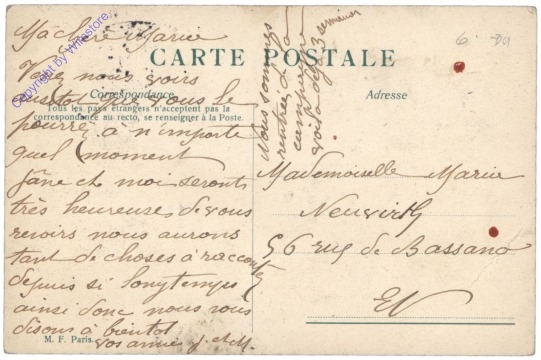 Ma chère Marie
CARTE POSTALE
Venez nous voir
Correspondance
aussitôt que vous le
Tous les pays étrangers n'acceptent pas la
correspondance au recto, se renseigner à la Poste.
pourrez à n'importe
quel moment
Jane et moi seront
très heureuses de vous
revoirs nous aurons
tant de choses à raconter
depuis si longtemps
ainsi donc nous vous
disons à bientot
vos amies J. et M.
M. F. Paris.
Nous sommes
rentrées de la
campagne
voila déjà 3 semaines
Adresse
Mademoiselle Marie
Neuvirth
56 rue de Bassano
EV
Copyright by Wikestore
6.-